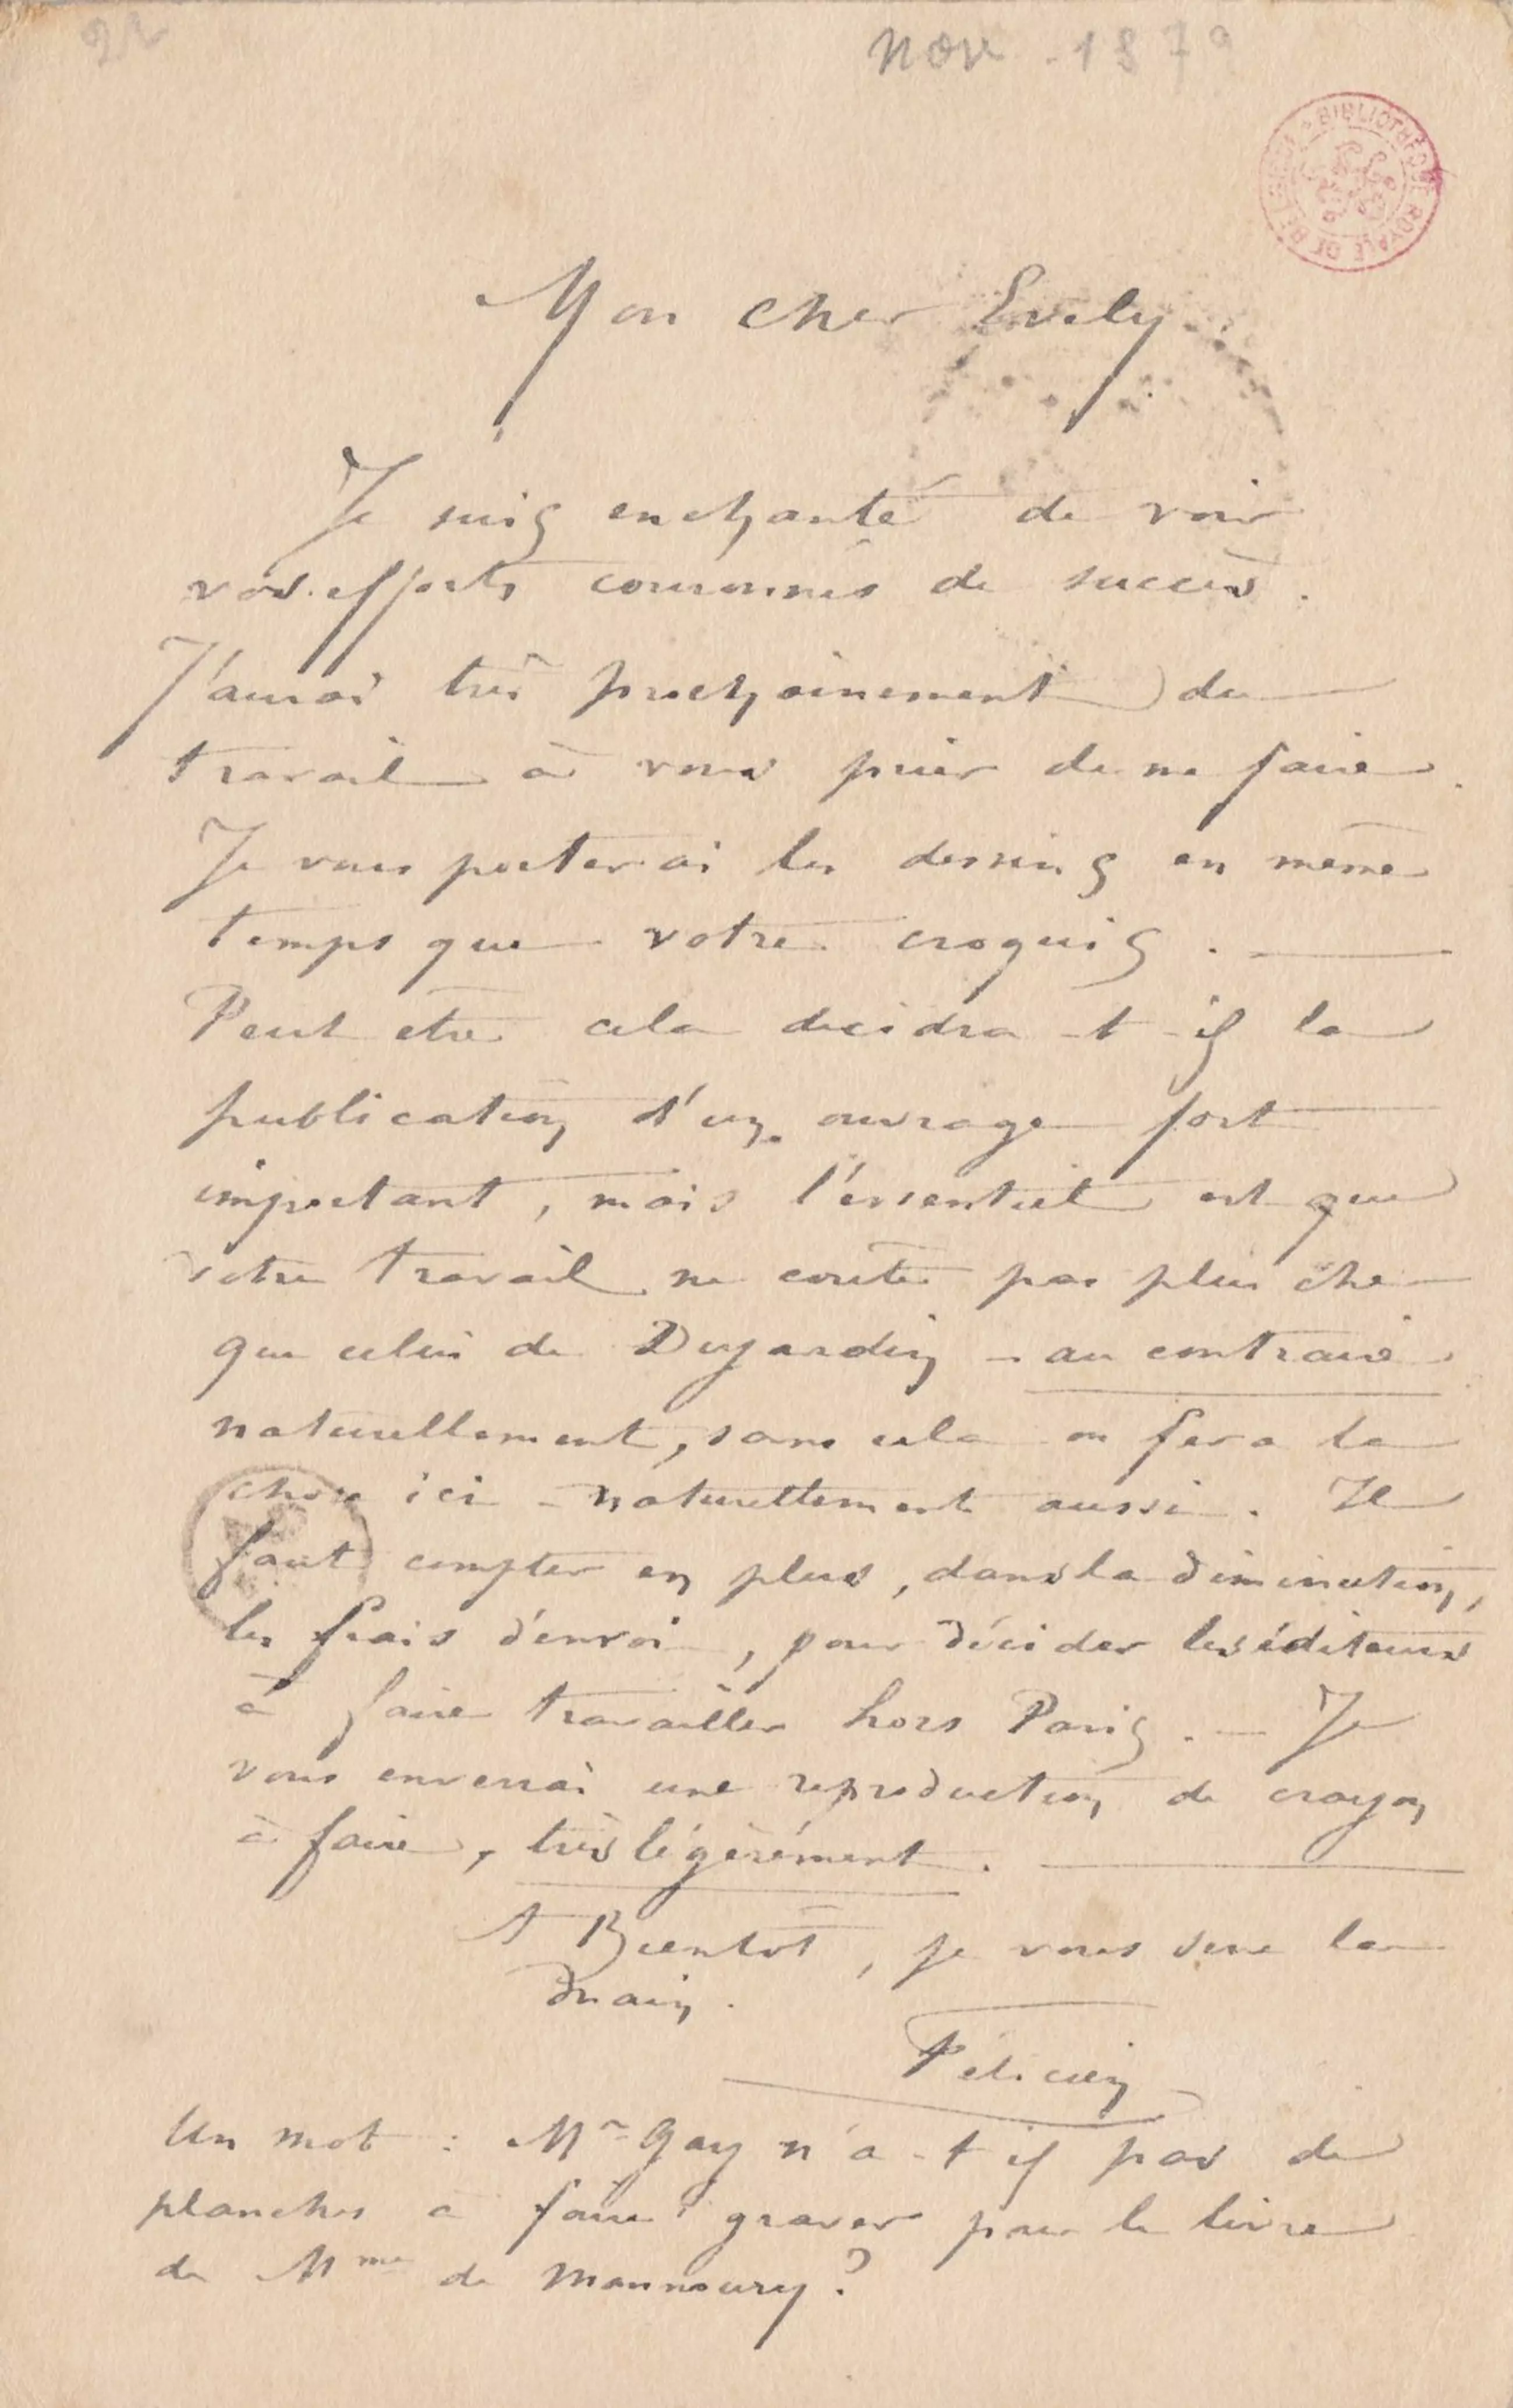 22
nov - 1879
BIBLIOTHEQUE ROYALE DE BELGIQUE
Mon cher Evely.
Je suis enchanté de voir
vos efforts couronnés de succès.
J'aurai très prochainement du
travail à vous prier de me faire.
Je vous porterai les dessins en même
temps que votre croquis. —
Peut etre cela decidra -t-il la
publication d'un ouvrage fort
important, mais l'essentiel est que
votre travail ne coute pas plus cher
que celui de Dujardin - au contraire
naturellement, sans cela on fera la
chose ici - naturellement aussi. Il
faut compter en plus, dans la diminution,
les frais d'envoi, pour décider les éditeurs
à faire travailler hors Paris. — Je
vous enverrai une reproduction de crayon
à faire, très légèrement. —
A Bientôt, je vous serre la
main.
Félicien
Un mot : Mr Gay n'a -t il pas de
planches a faire graver pour le livre
de Mme de Mannoury?